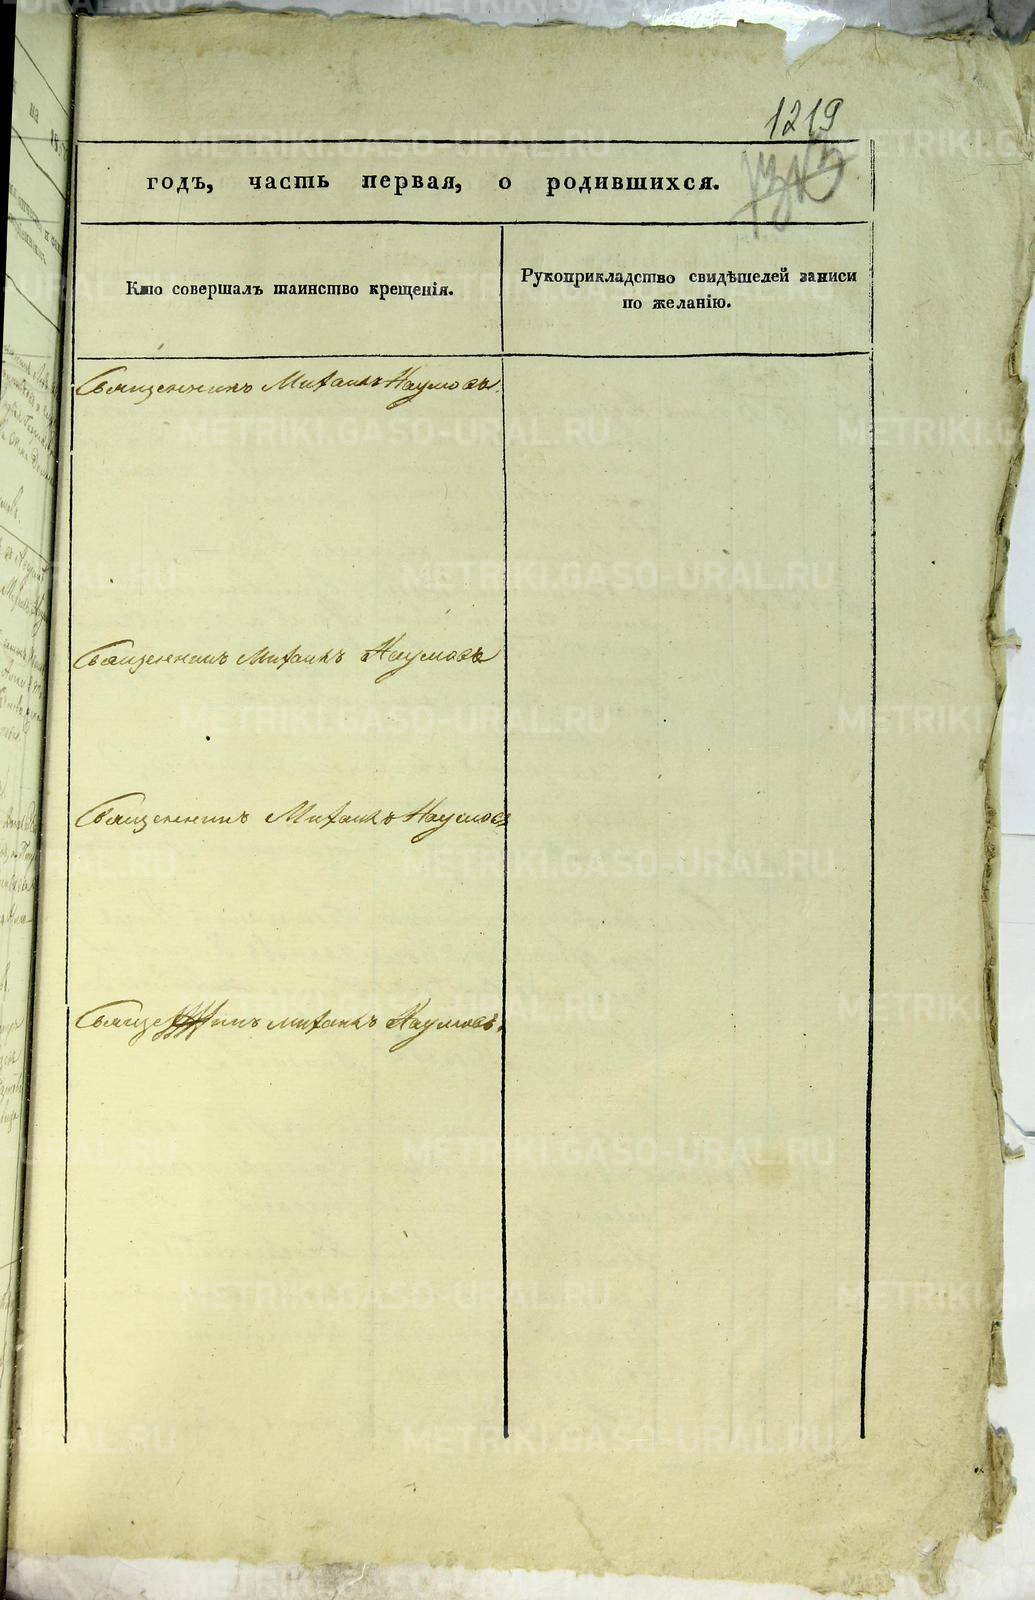 1219
годъ, часть первая, о родившихся.
Кто совершалъ таинство крещенія.
Рукоприкладство свидѣтелей записи
по желанію.
Священникъ Михаилъ Наумовъ.
Священникъ Михаилъ Наумовъ
Священникъ Михаилъ Наумовъ
Священникъ Михаилъ Наумовъ.
METRIKI.GASO-URAL.RU